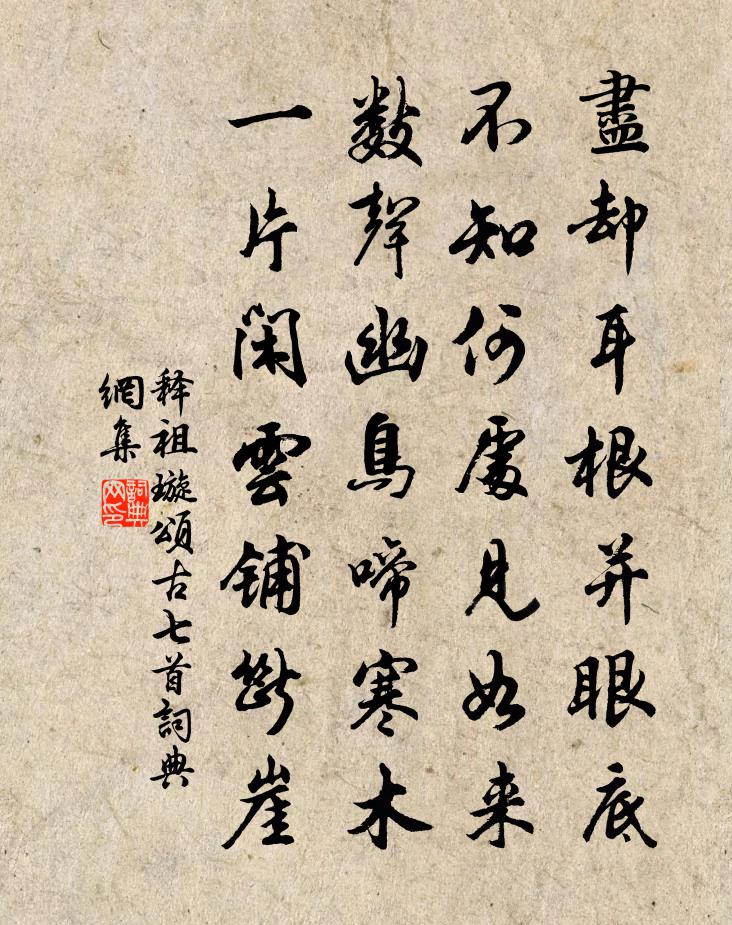 盡却耳根并眼底
不知何處見如来
數聲幽鳥啼寒木
一片閑雲鋪斷崖
释祖璇頌古七首詞典
網集
詞典
网印